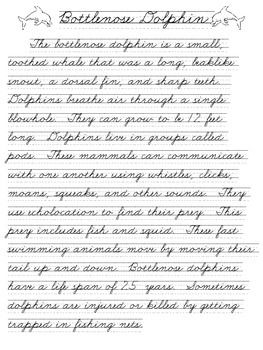 Bottlenose Dolphin
The bottlenose dolphin is a small,
toothed whale that was a long, beaklike
snout, a dorsal fin, and sharp teeth.
Dolphins breathe air through a single
blowhole. They can grow to be 12 feet
long. Dolphins live in groups called
pods. These mammals can communicate
with one another using whistles, clicks,
moans, squeaks, and other sounds. They
use echolocation to find their prey. This
prey includes fish and squid. These fast
swimming animals move by moving their
tail up and down. Bottlenose dolphins
have a life span of 25 years. Sometimes
dolphins are injured or killed by getting
trapped in fishing nets.